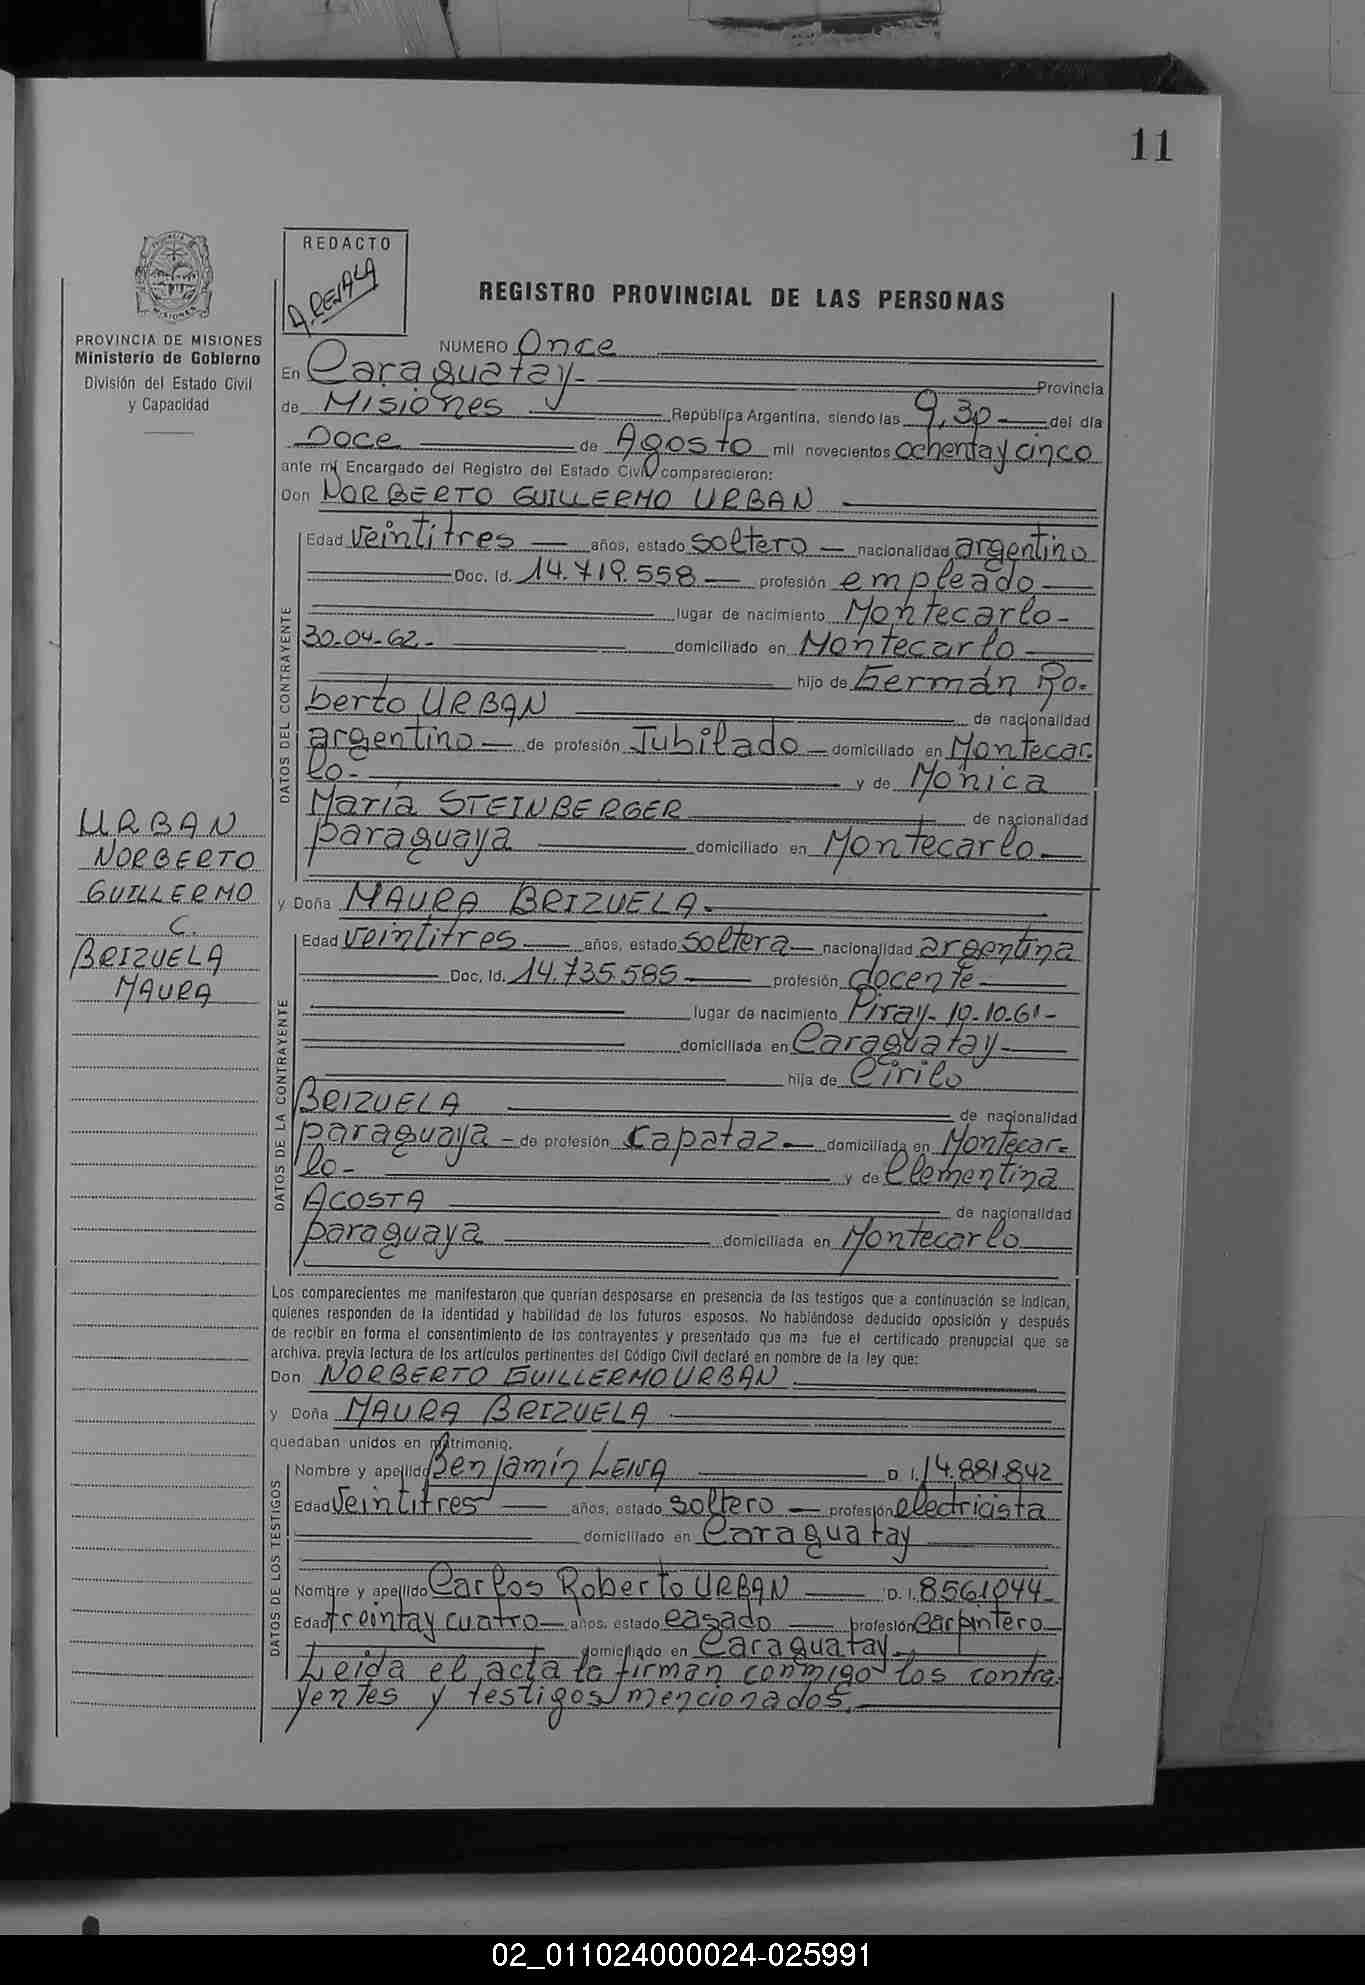 11
REDACTO
A. REJALA
PROVINCIA DE MISIONES
Ministerio de Gobierno
División del Estado Civil
y Capacidad
REGISTRO PROVINCIAL DE LAS PERSONAS
NUMERO Once
En Caraguatay- Provincia
de Misiones República Argentina, siendo las 9,30 del día
Doce de Agosto mil novecientos ochenta y cinco
ante mí Encargado del Registro del Estado Civil comparecieron:
Don NORBERTO GUILLERMO URBAN
DATOS DEL CONTRAYENTE
Edad veintitres años, estado soltero nacionalidad argentino
Doc. Id. 14.719.558 profesión empleado
lugar de nacimiento Montecarlo-
30-04-62- domiciliado en Montecarlo
hijo de Germán Ro-
berto URBAN de nacionalidad
argentino de profesión Jubilado domiciliado en Montecar-
lo- y de Mónica
María STEINBERGER de nacionalidad
paraguaya domiciliado en Montecarlo
URBAN
NORBERTO
GUILLERMO
C.
BRIZUELA
MAURA
y Doña MAURA BRIZUELA.
DATOS DE LA CONTRAYENTE
Edad veintitres años, estado soltera nacionalidad argentina
Doc. Id. 14.735.585 profesión docente
lugar de nacimiento Piray- 19-10-61-
domiciliada en Caraguatay
hija de Cirilo
BRIZUELA de nacionalidad
paraguaya - de profesión capataz domiciliada en Montecar=
lo- y de Clementina
ACOSTA de nacionalidad
paraguaya domiciliada en Montecarlo
Los comparecientes me manifestaron que querían desposarse en presencia de los testigos que a continuación se indican,
quienes responden de la identidad y habilidad de los futuros esposos. No habiéndose deducido oposición y después
de recibir en forma el consentimiento de los contrayentes y presentado que me fue el certificado prenupcial que se
archiva. previa lectura de los artículos pertinentes del Código Civil declaré en nombre de la ley que:
Don NORBERTO GUILLERMO URBAN
y Doña MAURA BRIZUELA
quedaban unidos en matrimonio.
DATOS DE LOS TESTIGOS
Nombre y apellido Benjamín LEIVA D. I. 14.881.842
Edad veintitres años, estado soltero profesión electricista
domiciliado en Caraguatay
Nombre y apellido Carlos Roberto URBAN D. I. 8561044
Edad treinta y cuatro años, estado casado profesión carpintero
domiciliado en Caraguatay
Leida el acta la firman conmigo los contra-
yentes y testigos mencionados.
02_011024000024-025991